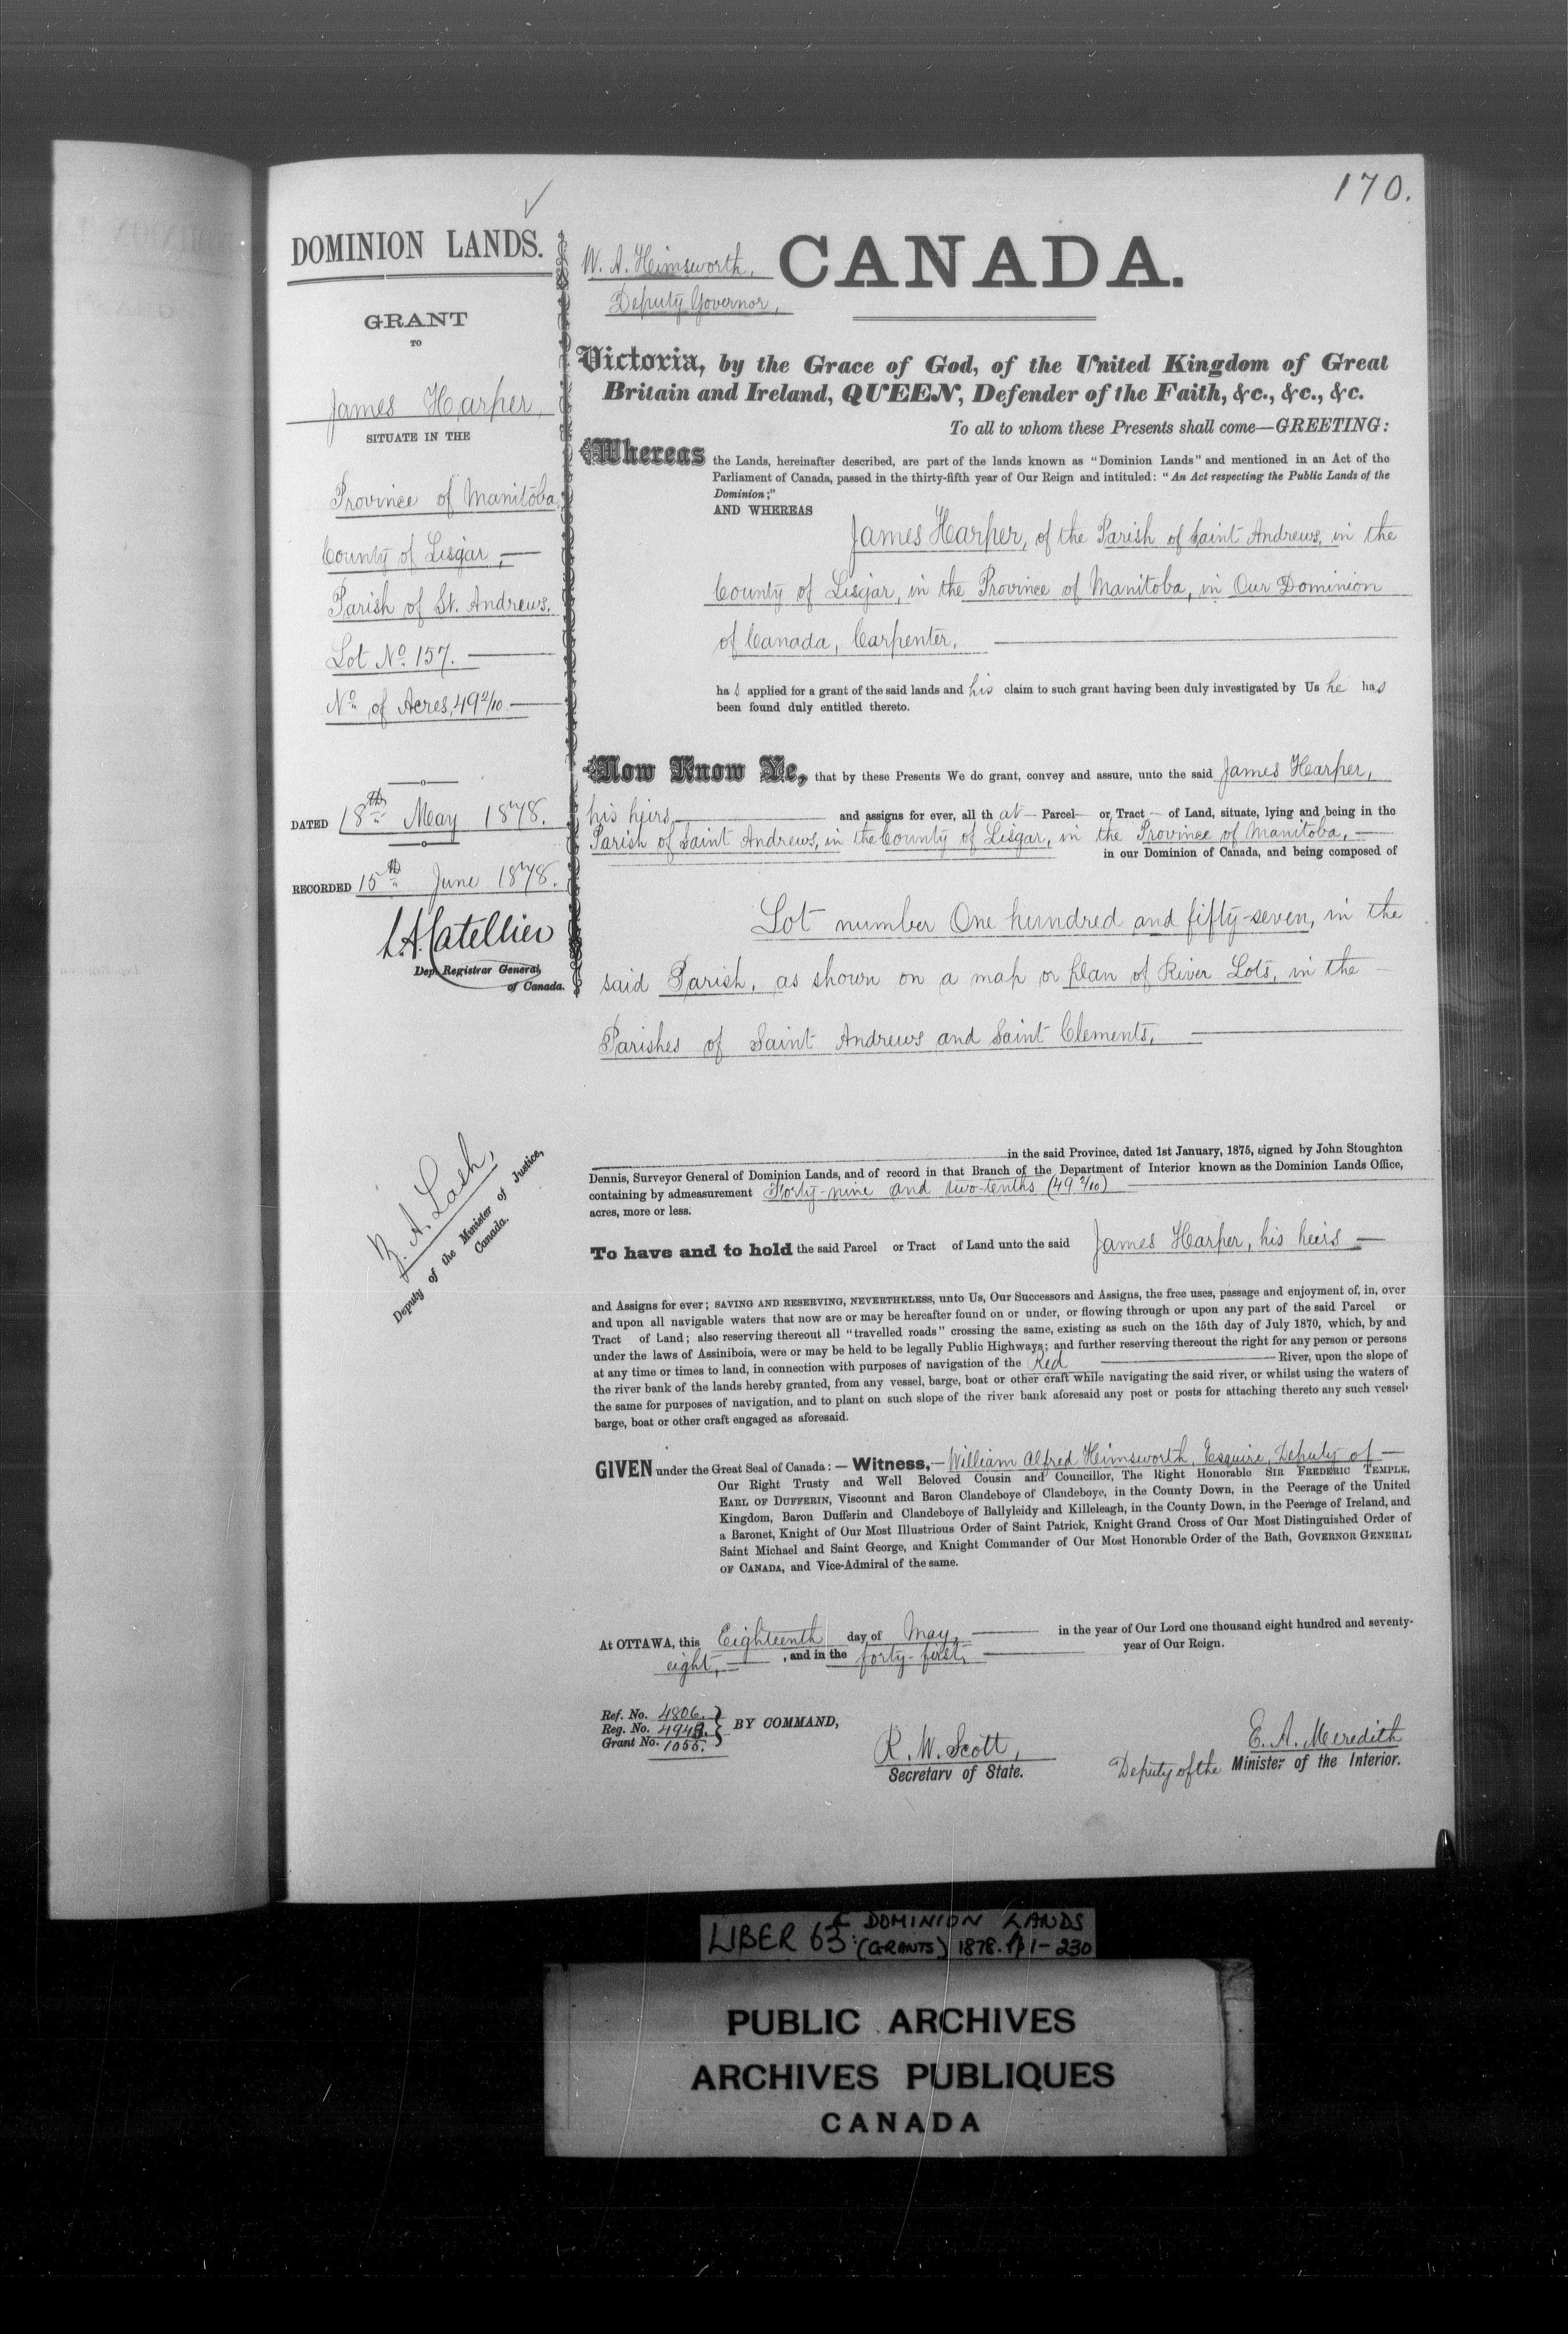 170.
DOMINION LANDS.
GRANT
TO
James Harper,
SITUATE IN THE
Province of Manitoba,
County of Lisgar,—
Parish of St. Andrews.
Lot No. 157.—
No. of Acres, 49 2/10.—
DATED 18th May 1878.
RECORDED 15th June 1878.
L.A. Catellier
Dep. Registrar General
of Canada.
Z. A. Lash,
Deputy of the Minister of Justice,
Canada.
W. A. Himsworth,
Deputy Governor,
CANADA.
Victoria, by the Grace of God, of the United Kingdom of Great
Britain and Ireland, QUEEN, Defender of the Faith, &c., &c., &c.
To all to whom these Presents shall come—GREETING:
Whereas the Lands, hereinafter described, are part of the lands known as "Dominion Lands" and mentioned in an Act of the
Parliament of Canada, passed in the thirty-fifth year of Our Reign and intituled: "An Act respecting the Public Lands of the
Dominion;"
AND WHEREAS
James Harper, of the Parish of Saint Andrews, in the
County of Lisgar, in the Province of Manitoba, in Our Dominion
of Canada, Carpenter,
has applied for a grant of the said lands and his claim to such grant having been duly investigated by Us he has
been found duly entitled thereto.
Now Know Ye, that by these Presents We do grant, convey and assure, unto the said James Harper,
his heirs, and assigns for ever, all that — Parcel — or Tract — of Land, situate, lying and being in the
Parish of Saint Andrews, in the County of Lisgar, in the Province of Manitoba,—
in our Dominion of Canada, and being composed of
Lot number One hundred and fifty-seven, in the
said Parish, as shown on a map or plan of River Lots, in the —
Parishes of Saint Andrews and Saint Clements,
in the said Province, dated 1st January, 1875, signed by John Stoughton
Dennis, Surveyor General of Dominion Lands, and of record in that Branch of the Department of Interior known as the Dominion Lands Office,
containing by admeasurement Forty-nine and two-tenths (49 2/10)
acres, more or less.
To have and to hold the said Parcel or Tract of Land unto the said James Harper, his heirs —
and Assigns for ever; SAVING AND RESERVING, NEVERTHELESS, unto Us, Our Successors and Assigns, the free uses, passage and enjoyment of, in, over
and upon all navigable waters that now are or may be hereafter found on or under, or flowing through or upon any part of the said Parcel or
Tract of Land; also reserving thereout all "travelled roads" crossing the same, existing as such on the 15th day of July 1870, which, by and
under the laws of Assiniboia, were or may be held to be legally Public Highways; and further reserving thereout the right for any person or persons
at any time or times to land, in connection with purposes of navigation of the Red — River, upon the slope of
the river bank of the lands hereby granted, from any vessel, barge, boat or other craft while navigating the said river, or whilst using the waters of
the same for purposes of navigation, and to plant on such slope of the river bank aforesaid any post or posts for attaching thereto any such vessel,
barge, boat or other craft engaged as aforesaid.
GIVEN under the Great Seal of Canada:— Witness,— William Alfred Himsworth, Esquire, Deputy of —
Our Right Trusty and Well Beloved Cousin and Councillor, The Right Honorable SIR FREDERIC TEMPLE,
EARL OF DUFFERIN, Viscount and Baron Clandeboye of Clandeboye, in the County Down, in the Peerage of the United
Kingdom, Baron Dufferin and Clandeboye of Ballyleidy and Killeleagh, in the County Down, in the Peerage of Ireland, and
a Baronet, Knight of Our Most Illustrious Order of Saint Patrick, Knight Grand Cross of Our Most Distinguished Order of
Saint Michael and Saint George, and Knight Commander of Our Most Honorable Order of the Bath, GOVERNOR GENERAL
OF CANADA, and Vice-Admiral of the same.
At OTTAWA, this Eighteenth day of May, in the year of Our Lord one thousand eight hundred and seventy-
eight, — , and in the forty-first, year of Our Reign.
Ref. No. 4806.
Reg. No. 4948.
Grant No. 1055.
BY COMMAND,
R. W. Scott,
Secretary of State.
E. A. Meredith
Deputy of the Minister of the Interior.
LIBER 63: DOMINION LANDS
(GRANTS) 1878. pp 1-230
PUBLIC ARCHIVES
ARCHIVES PUBLIQUES
CANADA